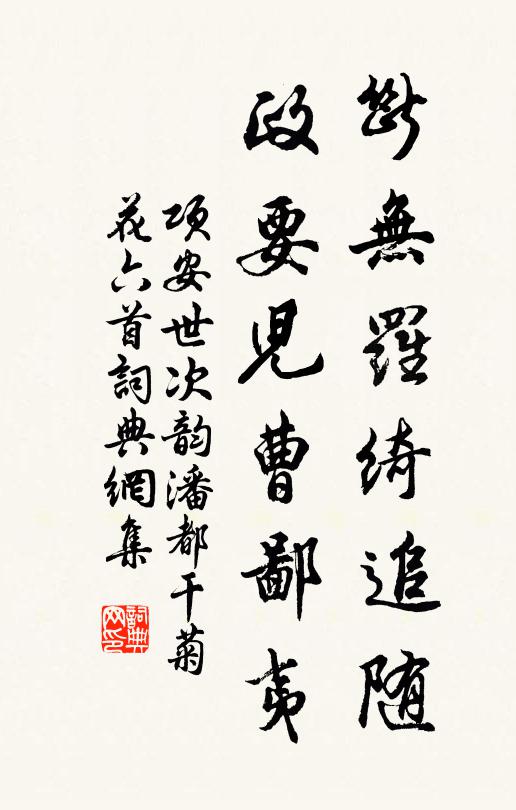 斷無羅綺追随
政要児曹鄙夷
项安世次韵潘都干菊
花六首詞典網集
詞典網印